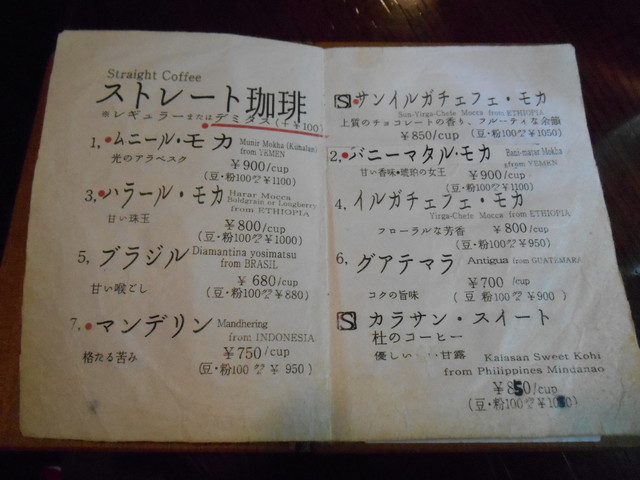 Straight Coffee
ストレート珈琲
※レギュラーまたはデミタス(+¥100)
1.・ムニール・モカ Munir Mokha
from YEMEN
光のアラベスク
¥900/cup
(豆・粉100g ¥1100)
3.・ハラール・モカ Harar Mocca
Boldgrain or Longberry
from ETHIOPIA
甘い珠玉
¥800/cup
(豆・粉100g ¥1000)
5, ブラジル Diamantina yosimatsu
from BRASIL
¥680/cup
甘い喉ごし (豆・粉100g ¥880)
7,・マンデリン Mandhering
from INDONESIA
¥750/cup
格たる苦み
(豆・粉100g ¥950)
S・サンイルガチェフェ・モカ
Sun-Yirga-Chefe Mocca from ETHIOPIA
上質のチョコレートの香り、フルーティな余韻
¥850/cup (豆・粉100g ¥1050)
2.・バニーマタル・モカ Bani-matar Mokha
from YEMEN
甘い香味・琥珀の女王 ¥900/cup
(豆・粉100g ¥1100)
4. イルガチェフェ・モカ
Yirga-Chefe Mocca from ETHIOPIA
フローラルな芳香 ¥800/cup
(豆・粉100g ¥950)
6, グアテマラ Antigua from GUATEMARA
¥700/cup
コクの旨味 (豆・粉100g ¥900)
S カラサン・スイート
杜のコーヒー
優しい 甘露 Kalasan Sweet Kohi
from Philippines Mindanao
¥850/cup
(豆・粉100g